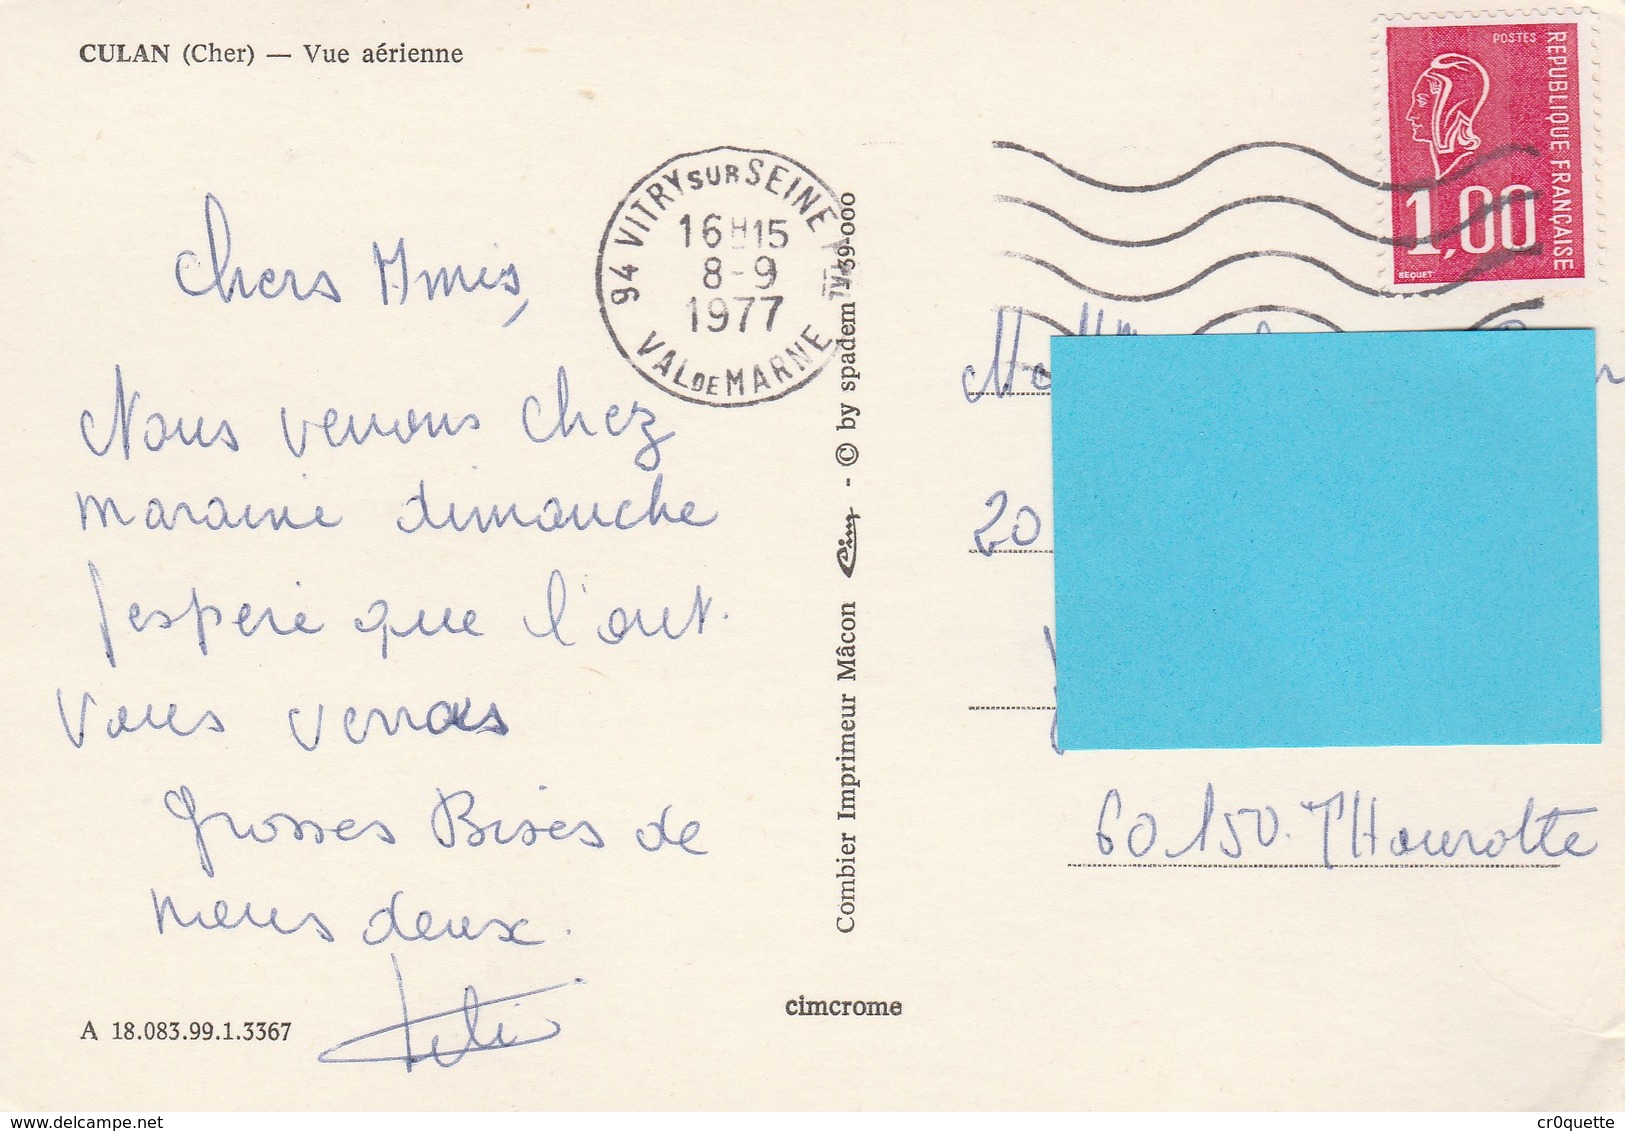 CULAN (Cher) — Vue aérienne
Chers Amis,
Nous venons chez
maraine dimanche
J'espère que l'on t.
Vous verras
Grosses Bises de
nous deux.
A 18.083.99.1.3367
94 VITRY SUR SEINE
16H15
8-9
1977
VAL DE MARNE
Combier Imprimeur Mâcon Cim - © by spadem 1-39-000
cimcrome
POSTES
REPUBLIQUE FRANÇAISE
1,00
BEQUET
20
60.150. THourotte
cr0quette